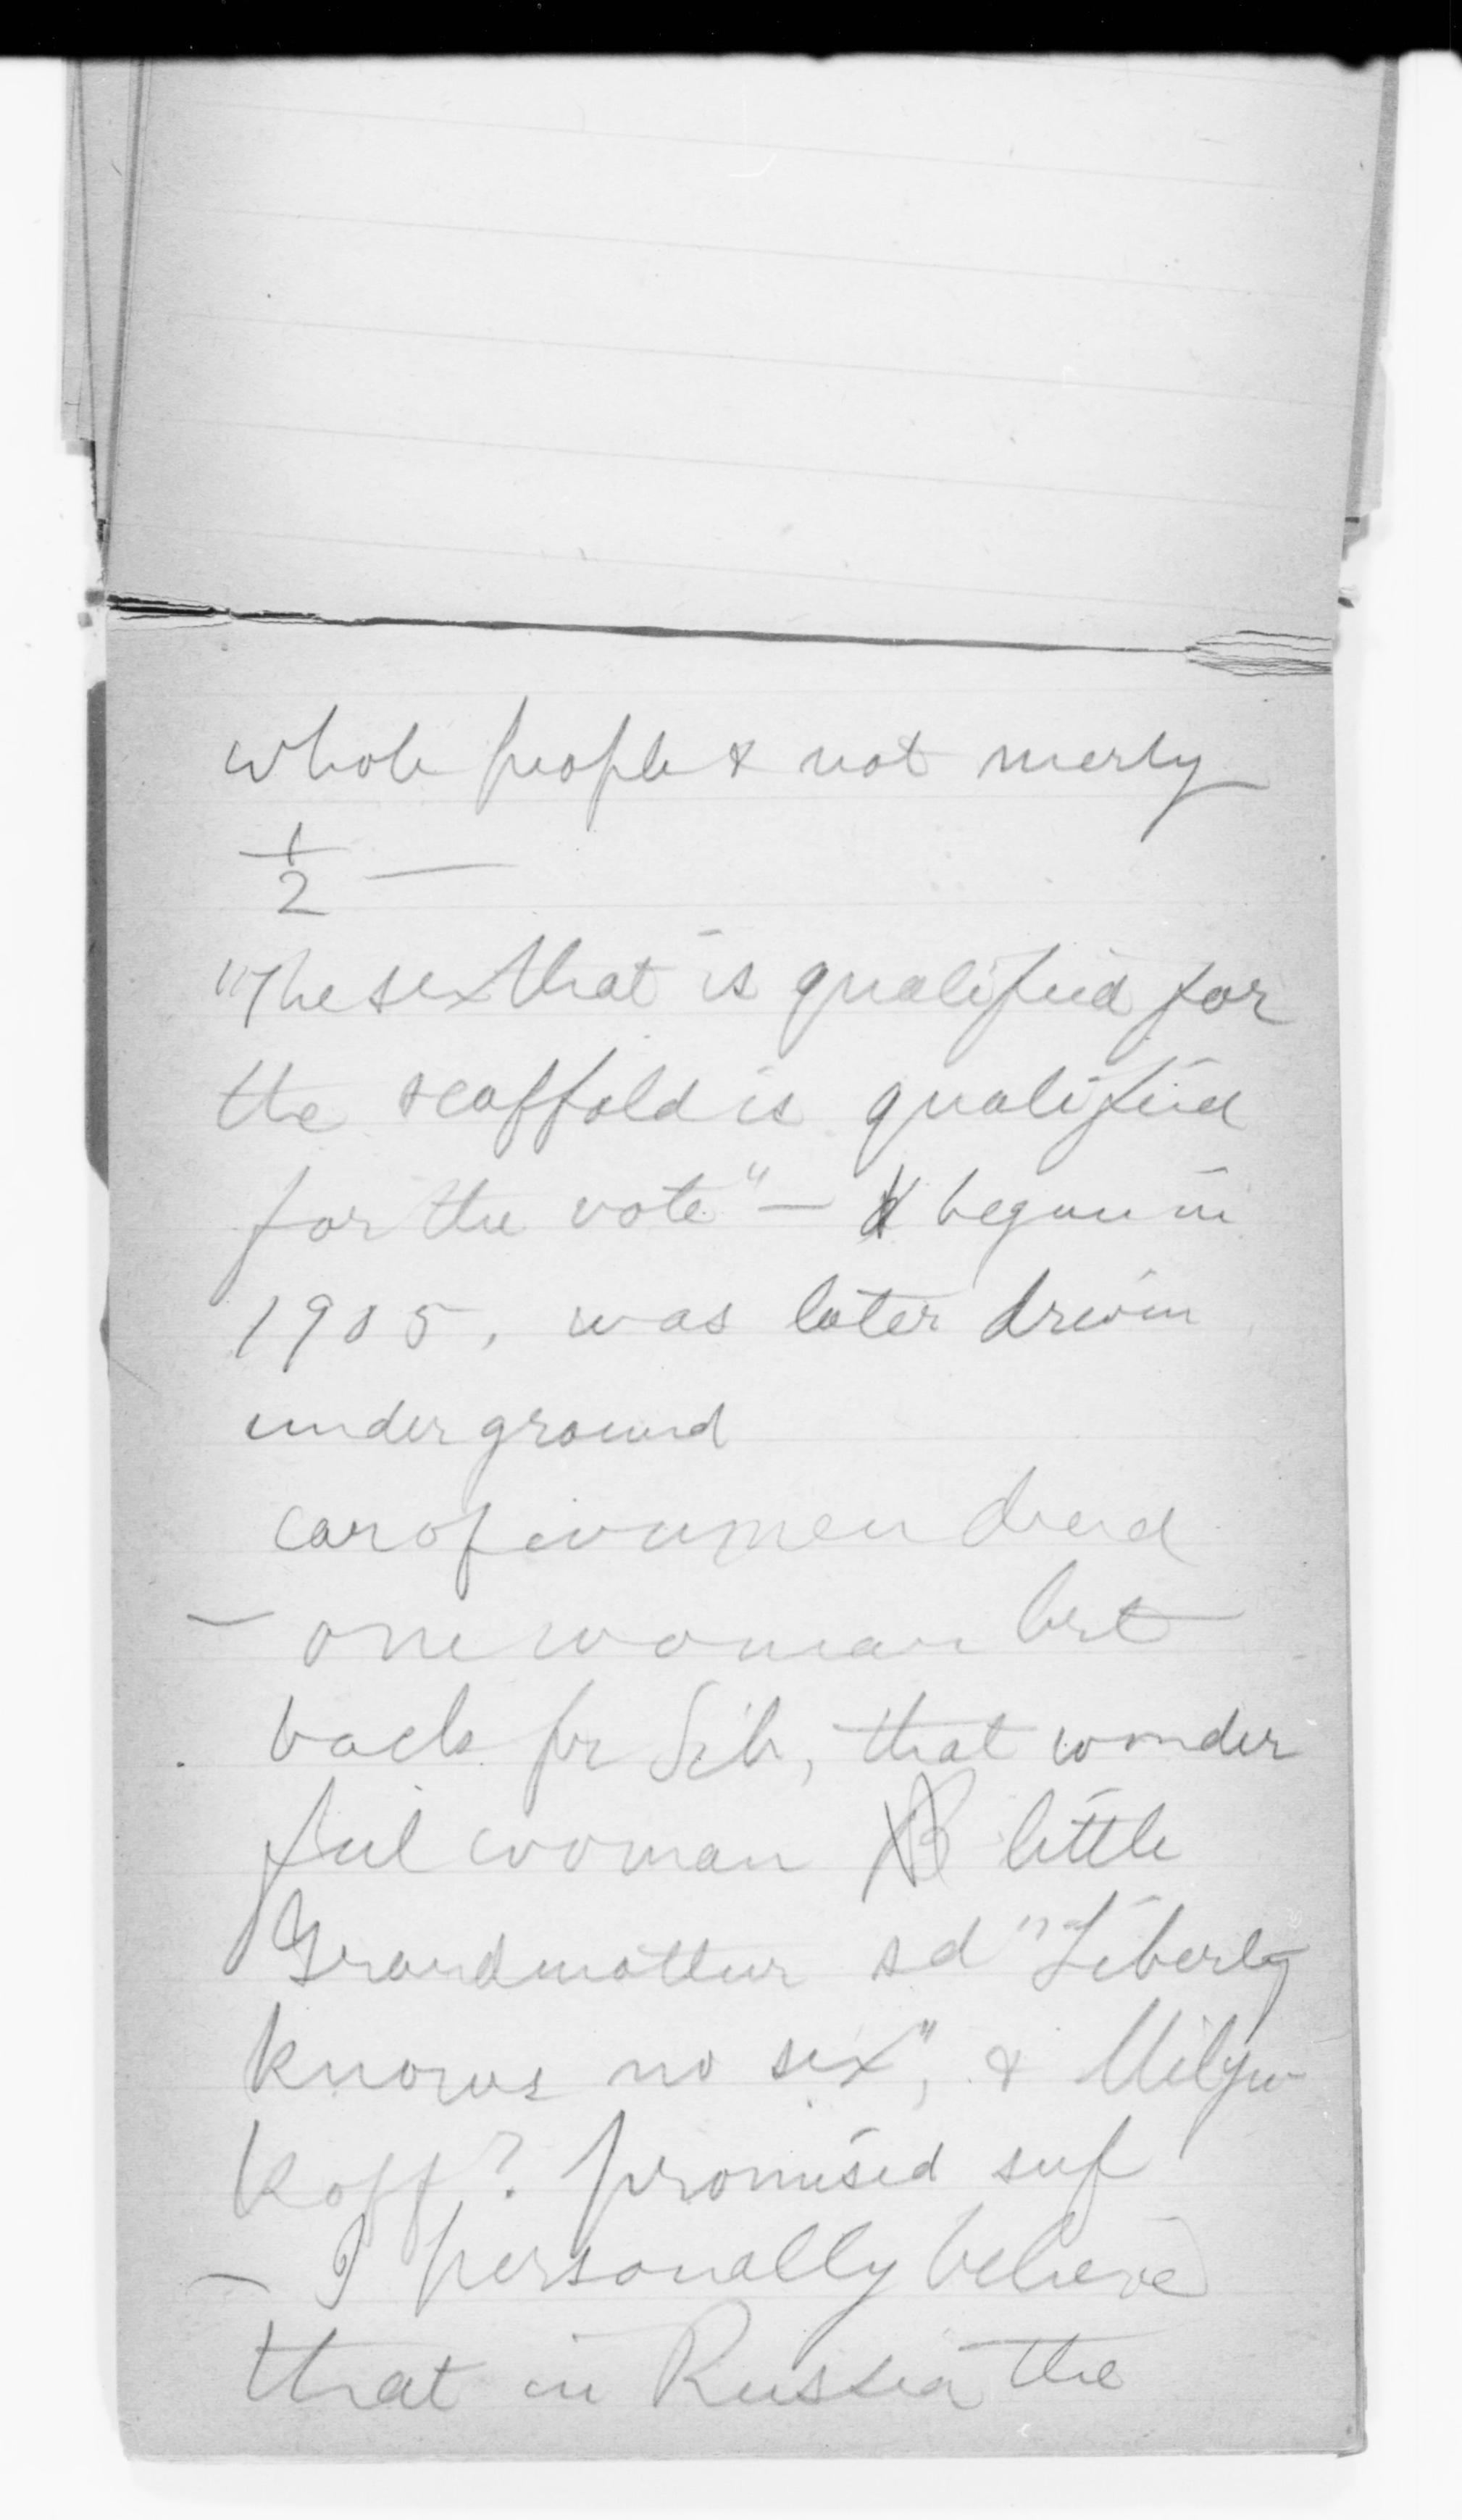 whole people & not merly
1/2 —
"The sex that is qualified for
the scaffold is qualified
for the vote" — begun in
1905, was later driven
underground
car of women dead
— one woman brt
back fr Sib, that wonder
ful woman little
Grandmother sd "Liberty
knows no sex", & Milyu-
koff? promised suf
— I personally believe
that in Russia the